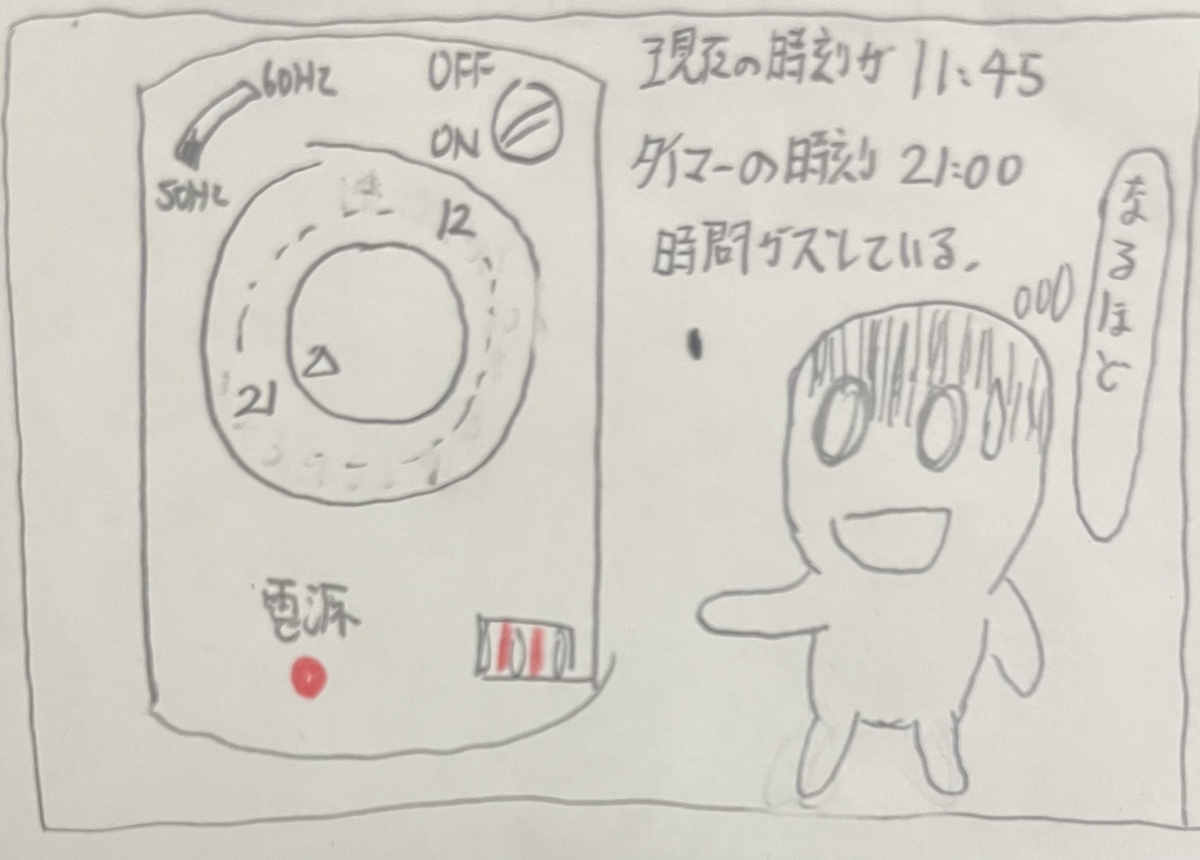 60Hz
50Hz
OFF
ON
12
21
電源
現在の時刻が 11:45
タイマーの時刻 21:00
時間がズレている.
なるほど